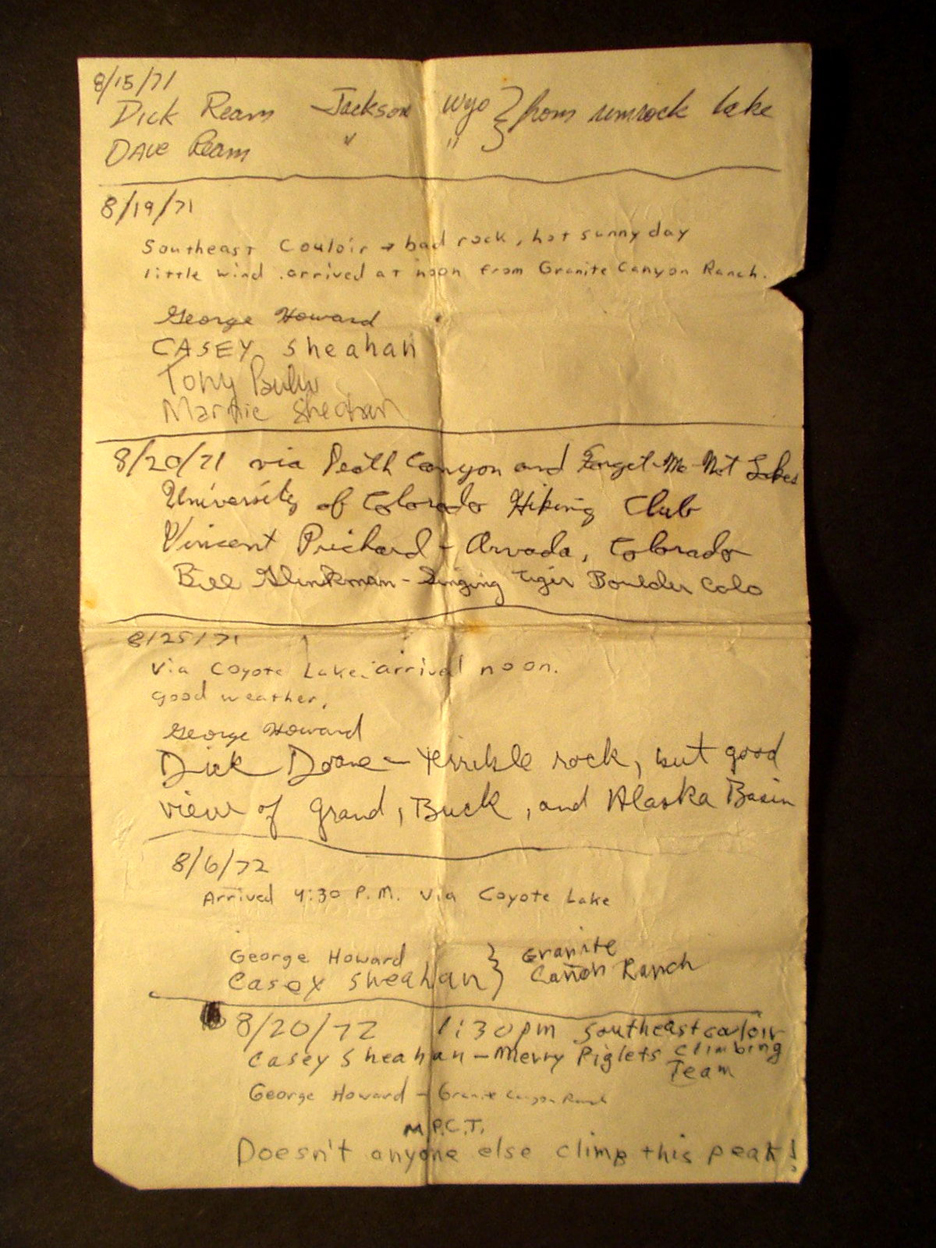 8/15/71
Dick Ream Jackson Wyo } from rimrock lake
Dave Ream " "
8/19/71
Southeast Couloir → bad rock, hot sunny day
little wind. arrived at noon from Granite Canyon Ranch.
George Howard
CASEY Sheahan
Tony
Marnie Sheahan
8/20/71 via Death Canyon and Forget-Me-Not Lakes
University of Colorado Hiking Club
Vincent Prichard - Arvada, Colorado
Bill - Singing Tiger Boulder Colo
8/25/71
via Coyote Lake. arrival noon.
good weather.
George Howard
Dick Doane - terrible rock, but good
view of Grand, Buck, and Alaska Basin
8/6/72
Arrived 4:30 P.M. via Coyote Lake
George Howard } Granite
Casey Sheahan } Cañon Ranch
8/20/72 1:30pm Southeast couloir
Casey Sheahan - Merry Piglets Climbing
Team
George Howard - Granite Canyon Ranch
M.P.C.T.
Doesn't anyone else climb this peak!